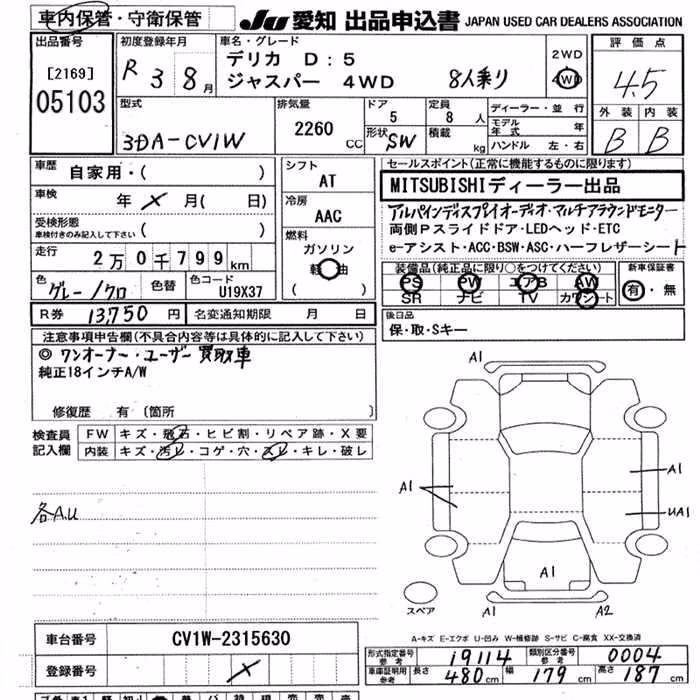 車内保管・守衛保管 JU 愛知 出品申込書 JAPAN USED CAR DEALERS ASSOCIATION
出品番号
[2169]
05103
初度登録年月
R 3 8月
車名・グレード
デリカ D:5
ジャスパー 4WD 8人乗り
2WD
4WD
評価点
4.5
外装 内装
B B
型式
3DA-CV1W
排気量
2260 CC
ドア
5
形状 SW
定員
8 人
積載 kg
ディーラー・並行
モデル年式 年
ハンドル 左・右
車歴
自家用・( )
車検
年 × 月( 日)
受検形態
車検付きのみ記入して下さい ( )
走行
2万0千799km
色
グレー/クロ
色替
色コード
U19X37
シフト
AT
冷房
AAC
燃料
ガソリン
軽油
( )
セールスポイント(正常に機能するものに限ります)
MITSUBISHIディーラー出品
アルパインディスプレイオーディオ・マルチアラウンドモニター
両側Pスライドドア・LEDヘッド・ETC
e-アシスト・ACC・BSW・ASC・ハーフレザーシート
装備品(純正品に限り○をつけてください)
PS PW エアB AW
SR ナビ TV カワシート
新車保証書
有・無
R券 13,750 円
名変通知期限 月 日
後日品
保・取・Sキー
注意事項申告欄(不具合内容等は具体的に記入して下さい)
◎ワンオーナー・ユーザー買取車
純正18インチA/W
修復歴 有〔箇所 〕
検査員記入欄
FW キズ・飛石・ヒビ割・リペア跡・X要
内装 キズ・汚レ・コゲ・穴・スレ・キレ・破レ
各A.U
A1
A1
A1
UA1
A1
A1
A2
スペア
A-キズ E-エクボ U-凹み W-補修跡 S-サビ C-腐食 XX-交換済
車台番号 CV1W-2315630
登録番号 ×
形式指定番号参考 19114
類別区分番号参考 0004
車庫証明用参考 長さ 480cm 幅 179cm 高さ 187cm